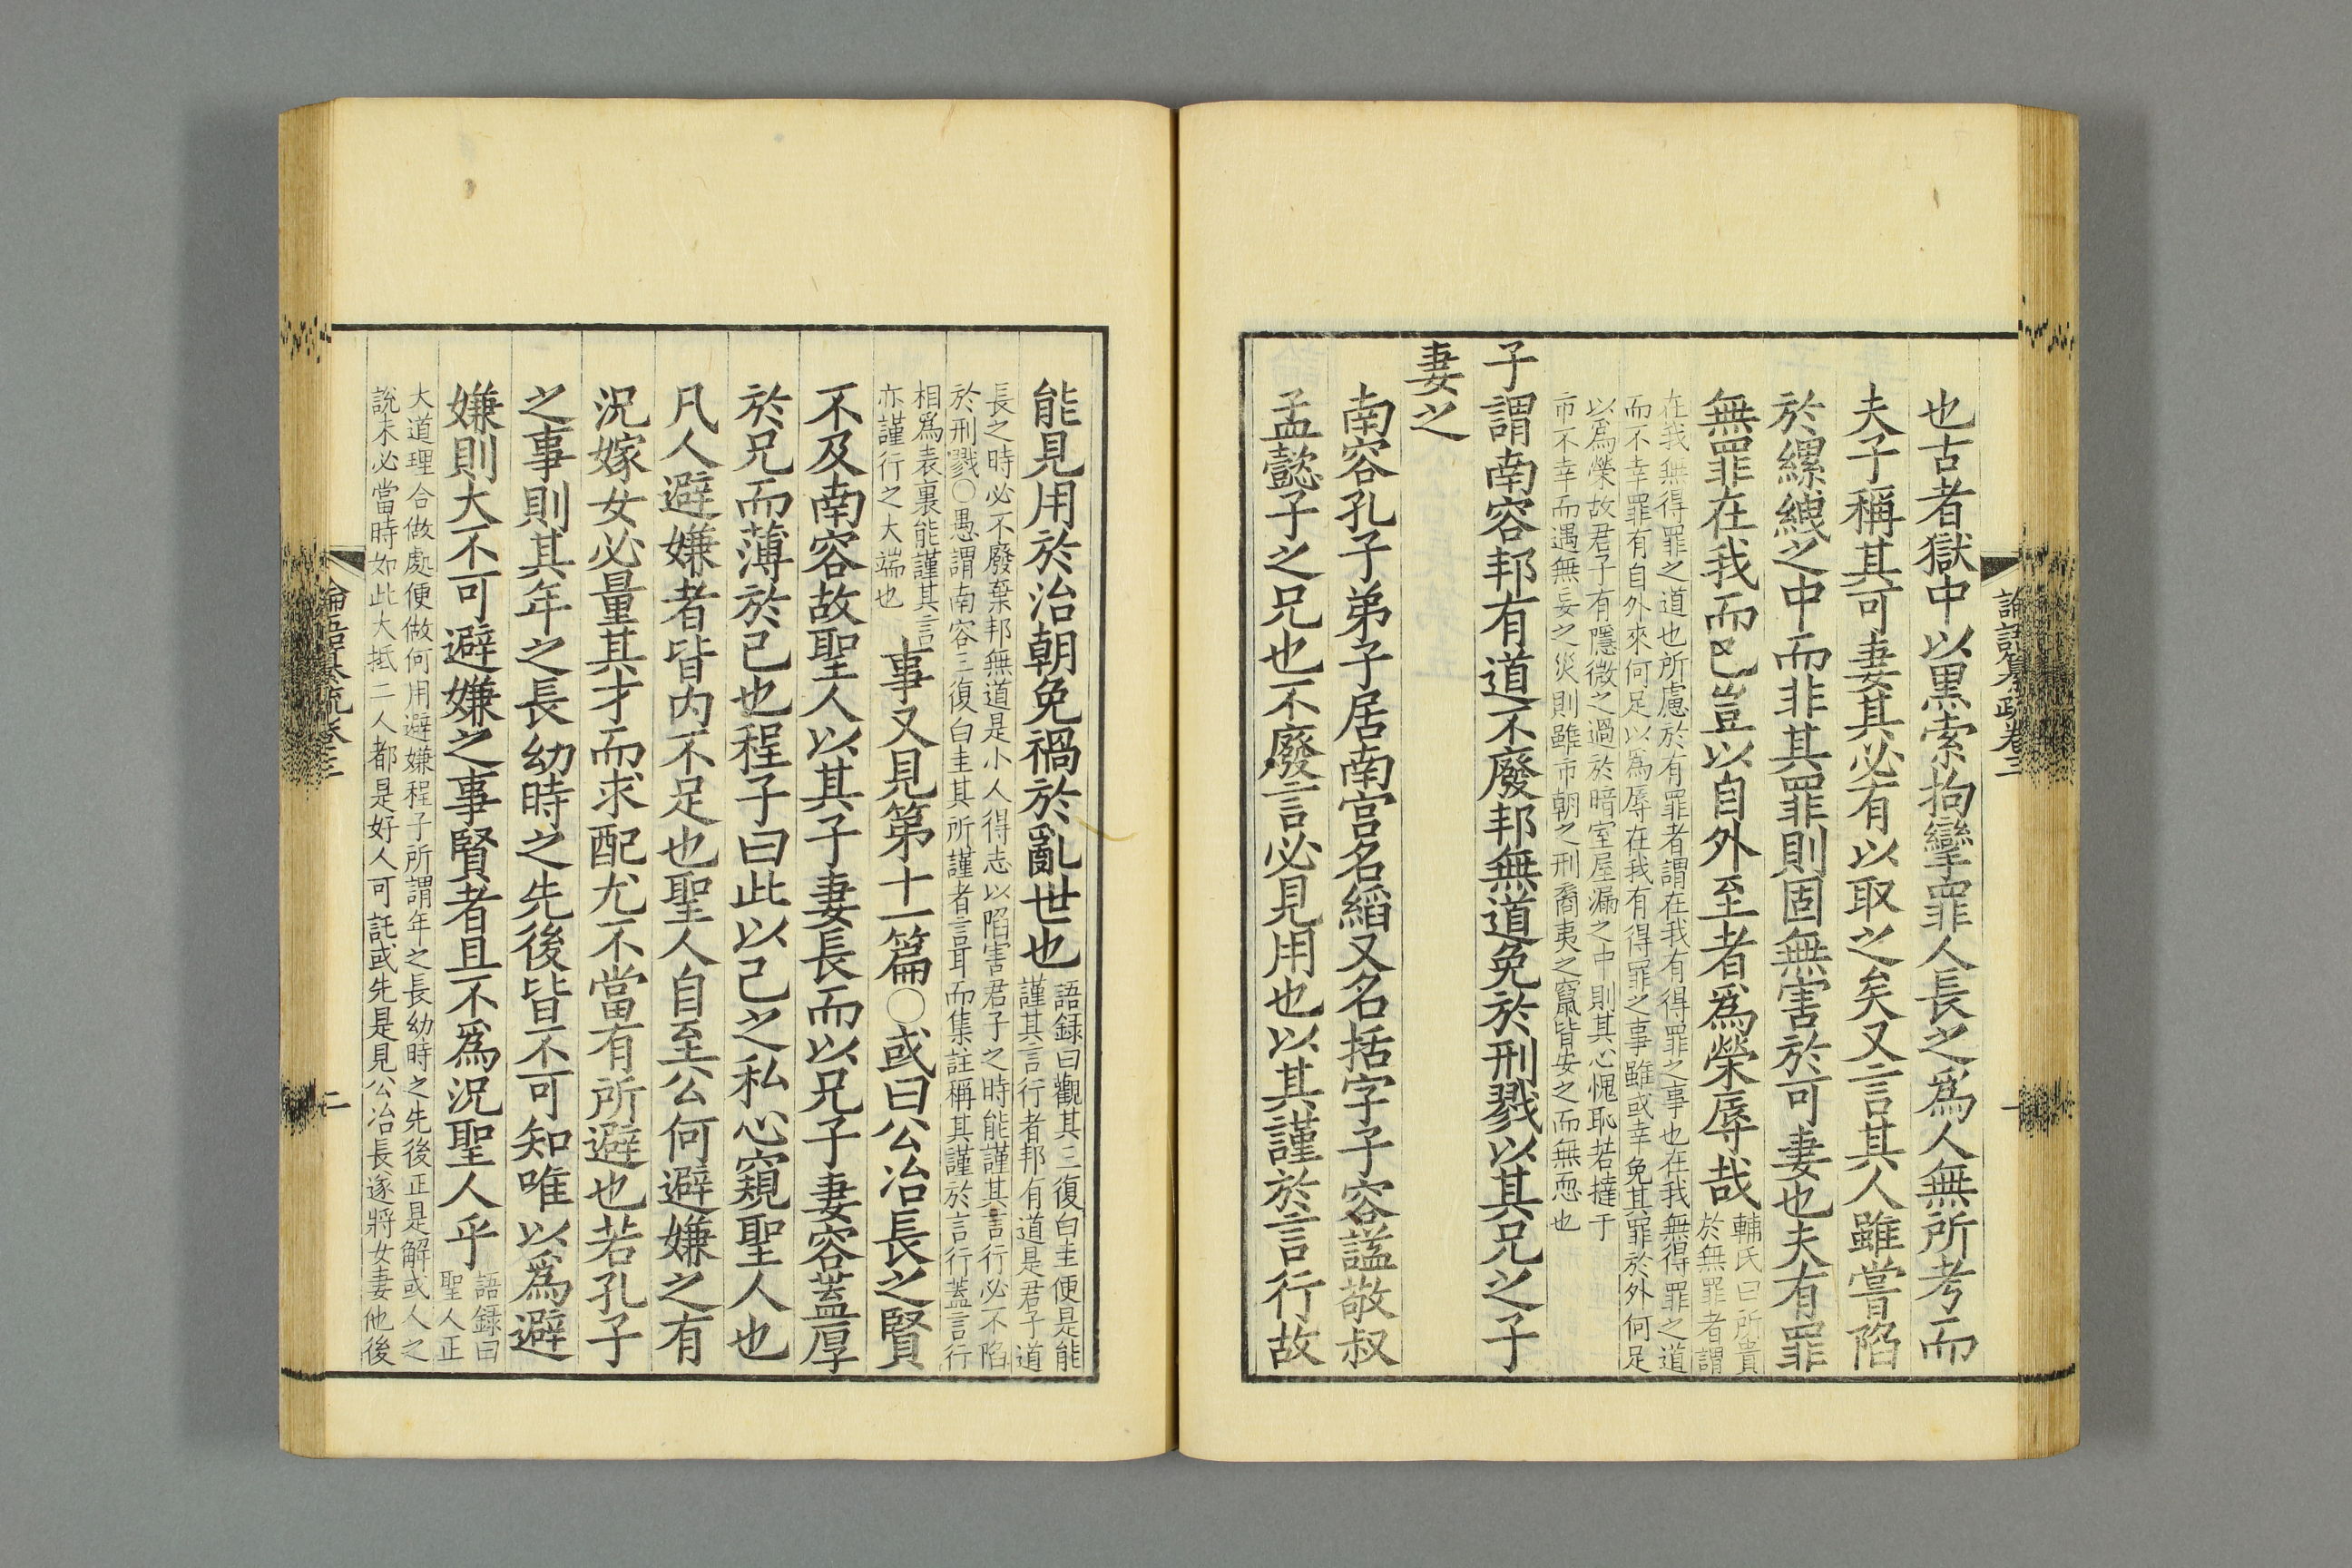 論語纂疏卷三
一
也古者獄中以黒索拘攣罪人長之爲人無所考而
夫子稱其可妻其必有以取之矣又言其人雖嘗陷
於縲絏之中而非其罪則固無害於可妻也夫有罪
無罪在我而已豈以自外至者爲榮辱哉
輔氏曰所貴
於無罪者謂
在我無得罪之道也所慮於有罪者謂在我有得罪之事也在我無得罪之道
而不幸罪有自外來何足以爲辱在我有得罪之事雖或幸免其罪於外何足
以爲榮故君子有隱微之過於暗室屋漏之中則其心愧恥若撻于
市不幸而遇無妄之災則雖市朝之刑裔夷之竄皆安之而無恧也
子謂南容邦有道不廢邦無道免於刑戮以其兄之子
妻之
南容孔子弟子居南宮名縚又名括字子容諡敬叔
孟懿子之兄也不廢言必見用也以其謹於言行故
能見用於治朝免禍於亂世也
語録曰觀其三復白圭便是能
謹其言行者邦有道是君子道
長之時必不廢棄邦無道是小人得志以陷害君子之時能謹其言行必不陷
於刑戮○愚謂南容三復白圭其所謹者言耳而集註稱其謹於言行蓋言行
相爲表裏能謹其言
亦謹行之大端也
事又見第十一篇○或曰公冶長之賢
不及南容故聖人以其子妻長而以兄子妻容蓋厚
於兄而薄於己也程子曰此以己之私心窺聖人也
凡人避嫌者皆内不足也聖人自至公何避嫌之有
況嫁女必量其才而求配尤不當有所避也若孔子
之事則其年之長幼時之先後皆不可知唯以爲避
嫌則大不可避嫌之事賢者且不爲況聖人乎
語録曰
聖人正
大道理合做處便做何用避嫌程子所謂年之長幼時之先後正是解或人之
說未必當時如此大抵二人都是好人可託或先是見公冶長遂將女妻他後
論語纂疏卷三
二